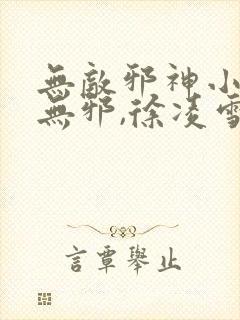 無敵邪神小
無邪,徐凌雪
言覃舉止